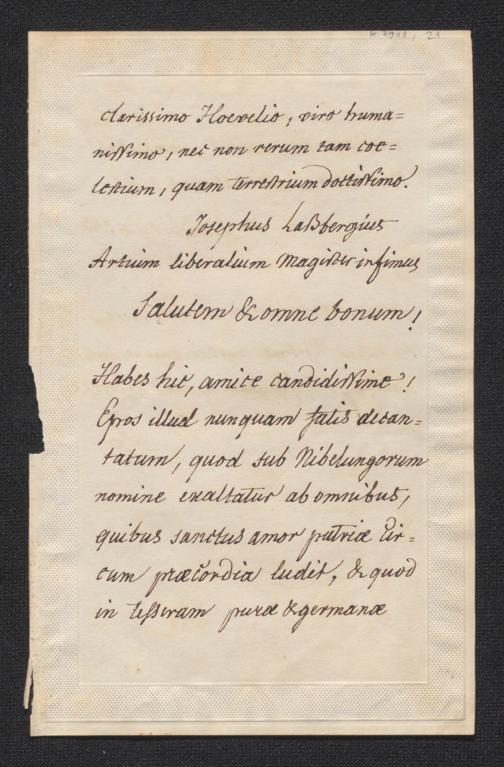 K 2911, 21
clarissimo Hoevelio, viro huma=
nissimo, nec non rerum tam coe=
lestium, quam terrestrium doctissimo.
Josephus Laßbergius
Artium liberalium Magister infimus
Salutem & omne bonum!
Habes hic, amice candidissime!
Epos illud nunquam satis decan=
tatum, quod sub Nibelungorum
nomine exaltatur ab omnibus,
quibus sanctus amor patriæ Cir=
cum præcordia ludit, & quod
in tesseram puræ & germanæ